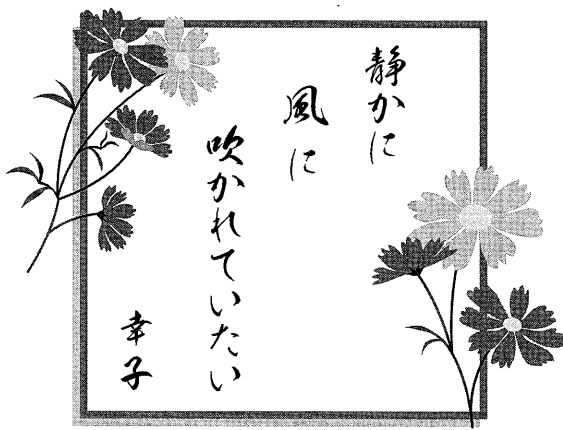 静かに
風に
吹かれていたい
幸子